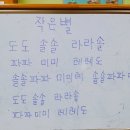 작은별
도도 솔솔 라라솔
파파 미미 레레도
솔솔파파 미미레 솔솔파파 미
도도 솔솔 라라솔
파파미미 레레도